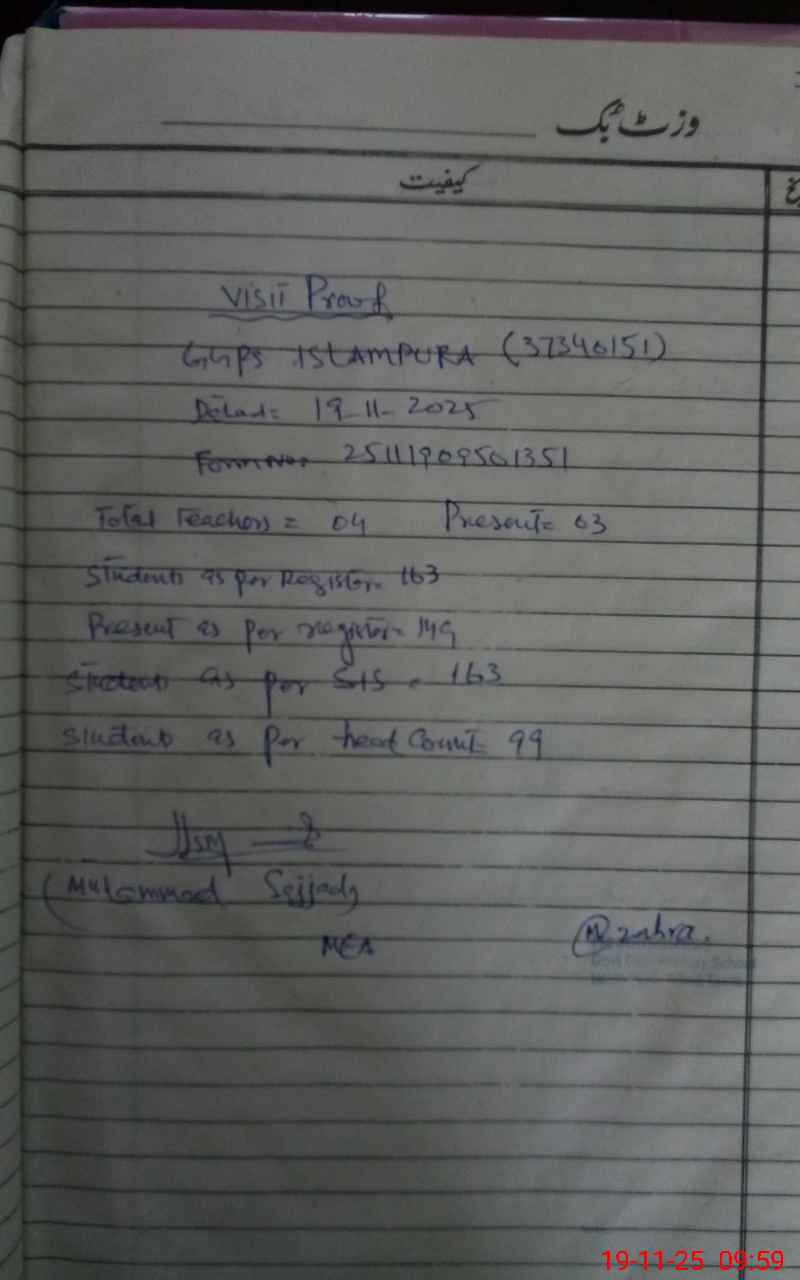 وزٹ بُک
کیفیت
Visit Proof
GGPS ISLAMPURA (37340151)
Dated= 19-11-2025
Form No= 25111909501351
Total Teachers = 04 Present= 03
Students as per Register= 163
Present as per register= 149
Students as per SIS = 163
Students as per head Count= 99
(Muhammad Sajjad)
MEA
zahra.
19-11-25 09:59